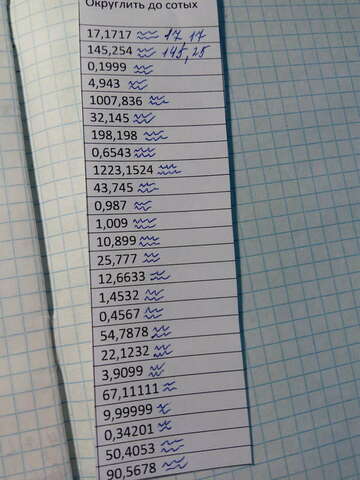 Округлить до сотых
17,1717 ≈ 17,17
145,254 ≈ 145,25
0,1999 ≈
4,943 ≈
1007,836 ≈
32,145 ≈
198,198 ≈
0,6543 ≈
1223,1524 ≈
43,745 ≈
0,987 ≈
1,009 ≈
10,899 ≈
25,777 ≈
12,6633 ≈
1,4532 ≈
0,4567 ≈
54,7878 ≈
22,1232 ≈
3,9099 ≈
67,11111 ≈
9,99999 ≈
0,34201 ≈
50,4053 ≈
90,5678 ≈